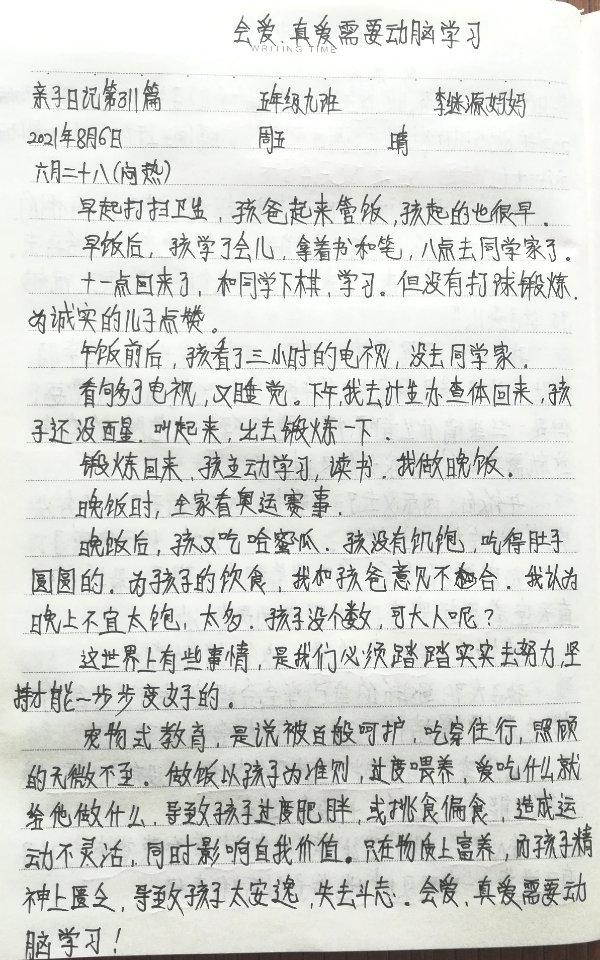 会爱、真爱需要动脑学习
WRITING TIME
亲子日记第311篇 五年级九班 李继源妈妈
2021年8月6日 周五 晴
六月二十八(闷热)
早起打扫卫生，孩爸起来管饭，孩起的也很早。
早饭后，孩学了会儿，拿着书和笔，八点去同学家了。
十一点回来了，和同学下棋，学习。但没有打球锻炼.
为诚实的儿子点赞。
午饭前后，孩看了三小时的电视，没去同学家.
看够了电视，又睡觉。下午,我去计生办查体回来，孩
子还没西星.叫起来，出去锻炼一下.
锻炼回来，孩主动学习，读书.我做晚饭.
晚饭时，全家看奥运赛事.
晚饭后，孩又吃哈蜜瓜.孩没有饥饱，吃得肚子
圆圆的.为孩子的饮食，我和孩爸意见不合.我认为
晚上不宜太饱，太多.孩子没个数，可大人呢？
这世界上有些事情，是我们必须踏踏实实去努力,坚
持才能一步步变好的。
宠物式教育，是说被百般呵护，吃穿住行，照顾
的无微不至.做饭以孩子为准则，过度喂养，爱吃什么就
给他做什么，导致孩子过度肥胖，或挑食偏食，造成运
动不灵活，同时影响自我价值。只在物质上富养，而孩子精
神上匮乏，导致孩子太安逸，失去斗志。会爱、真爱需要动
脑学习！